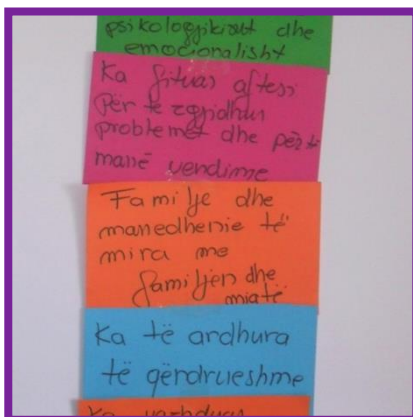 psikologjikisht dhe
emocionalisht
Ka fituar aftesi
Për të zgjidhur
problemet dhe për të
marrë vendime
Familje dhe
marredhenie të
mira me
familjen dhe
miqtë
Ka të ardhura
të qëndrueshme
Ka vazhduar